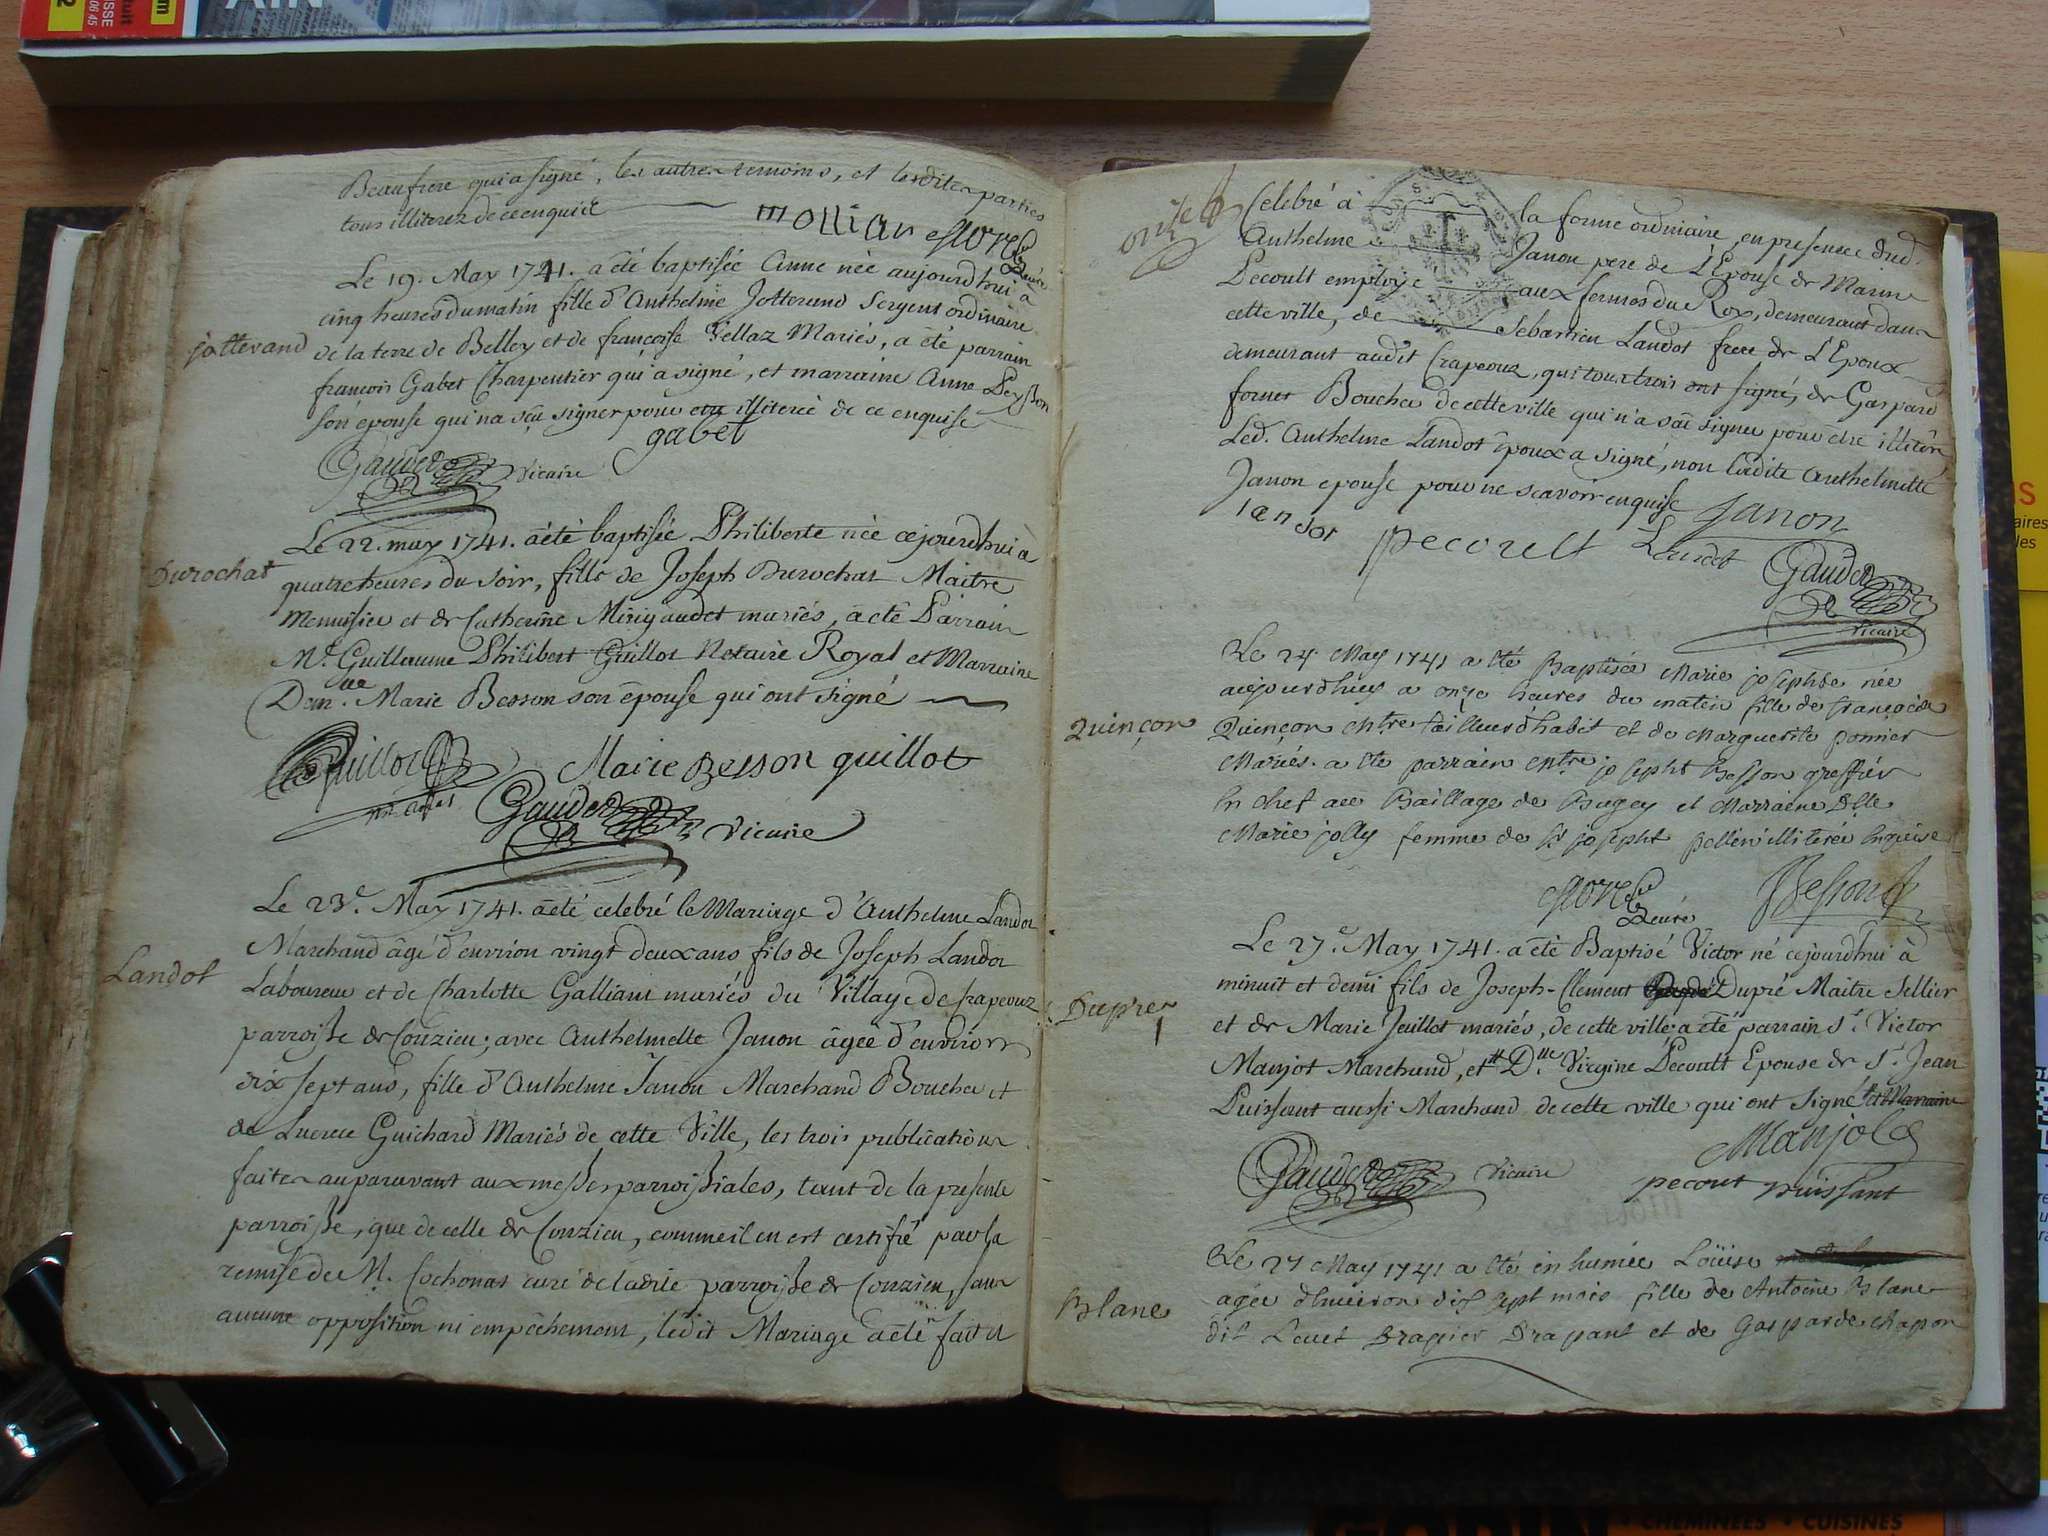 AIN
Beaufrere qui a signé, les autres temoins, et lesdites parties
tous illiterez de ce enquis
mollian
jotterand
Le 19. May 1741. a été baptisée Anne née aujourdhui à
cinq heures du matin fille d'Anthelme Jotterand Sergent ordinaire
de la terre de Belley et de françoise Vellaz Mariés, a été parrain
francois Gabet Charpentier qui a signé, et marraine Anne Peysson
son épouse qui n'a sçu signer pour etre illiterée de ce enquise
gabet
Gaudet vicaire
Durochat
Le 22. may 1741. a été baptisée Philiberte née cejourdhui à
quatre heures du soir, fille de Joseph Durochat Maitre
Menuisier et de Catherine Mirigaudet mariés, a été Parrain
Mr. Guillaume Philibert Guillot Notaire Royal et Marraine
Demlle. Marie Besson son épouse qui ont signé
Guillot
Marie Besson guillot
Gaudet vicaire
Landot
Le 23e. May 1741. a été celebré le Mariage d'Anthelme Landot
Marchand âgé d'environ vingt deux ans fils de Joseph Landot
Laboureur et de Charlotte Galliani mariés du Village de Crapeouz
parroisse de Conzieu; avec Anthelmette Janon âgée d'environ
dix sept ans, fille d'Anthelme Janon Marchand Boucher et
de Lucrece Guichard Mariés de cette Ville, les trois publications
faites auparavant aux messes parroissiales, tant de la presente
parroisse, que de celle de Conzieu, comme il en est certifié par la
remise de M. Cochonat curé de ladite parroisse de Conzieu, sans
aucune opposition ni empêchement, ledit Mariage a été fait et
Celebré à la forme ordinaire, en presence dud.
Anthelme Janon pere de L'Epouse de Marin
Pecoult employé aux fermes du Roy, demeurant dans
cette ville, de Sebastien Landot frere de L'Epoux
demeurant audit Crapeouz, qui tous trois ont signé, de Gaspard
fornet Boucher de cette ville qui n'a sçu signer pour etre illitéré
Led. Anthelme Landot époux a signé, non ladite Anthelmette
Janon epouse pour ne scavoir enquise
Janon
landot pecoult Landot
Gaudet
vicaire
Quinçon
Le 24 May 1741 a été Baptisée Marie josephte née
aujourdhuy a onze heures du matin fille de françois
Quinçon Mtre tailleur d'habit et de Marguerite ponnier
Mariés. a été parrain Mtre josepht Besson greffier
En chef au Baillage de Bugey et Marraine Dlle
Marie jolly femme de Sr josepht pellen illiterée Enquise
Besson
Dupres
Le 27e. May 1741. a été Baptisé Victor né cejourdhui à
minuit et demi fils de Joseph-Clement Dupré Maitre Sellier
et de Marie Juillet mariés, de cette ville; a été parrain Sr. Victor
Manjot Marchand, et Dlle. Virgine Pecoult Epouse de Sr. Jean
Puissant aussi Marchand de cette ville qui ont signé
Manjot
Gaudet vicaire
pecout puissant
Blanc
Le 27 May 1741 a été inhumée Loüise
agée d'Environ dix sept mois fille de Antoine Blanc
dit Leuet Drapier Drapant et de Gasparde chapon
CHEMINÉES • CUISINES